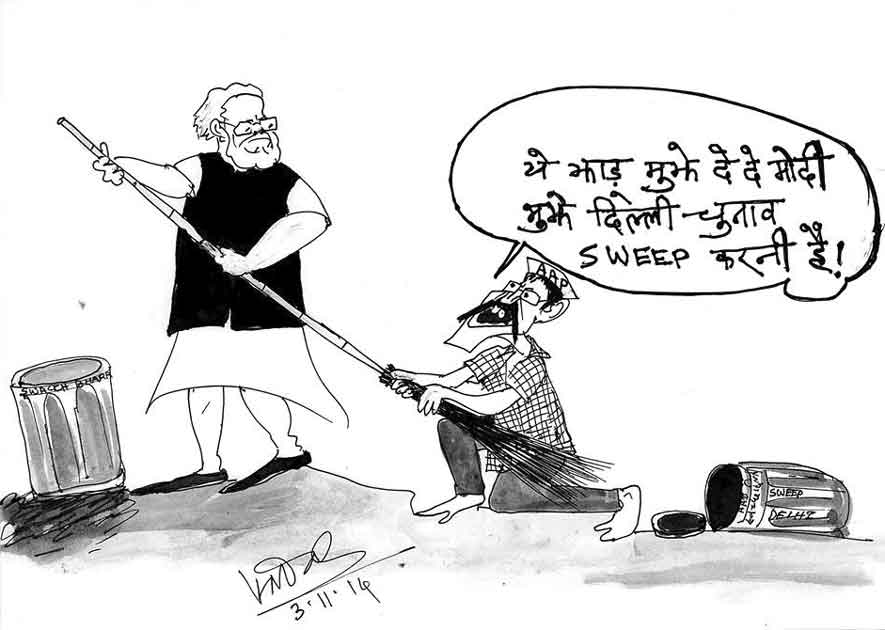 ये झाड़ मुझे दे दे मोदी
मुझे दिल्ली-चुनाव
SWEEP करनी है!
AAP
SWACCH BHARA
SWEEP
DELHI
3.11.14